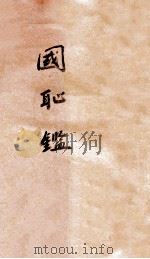 國恥鑑
mtoou.info